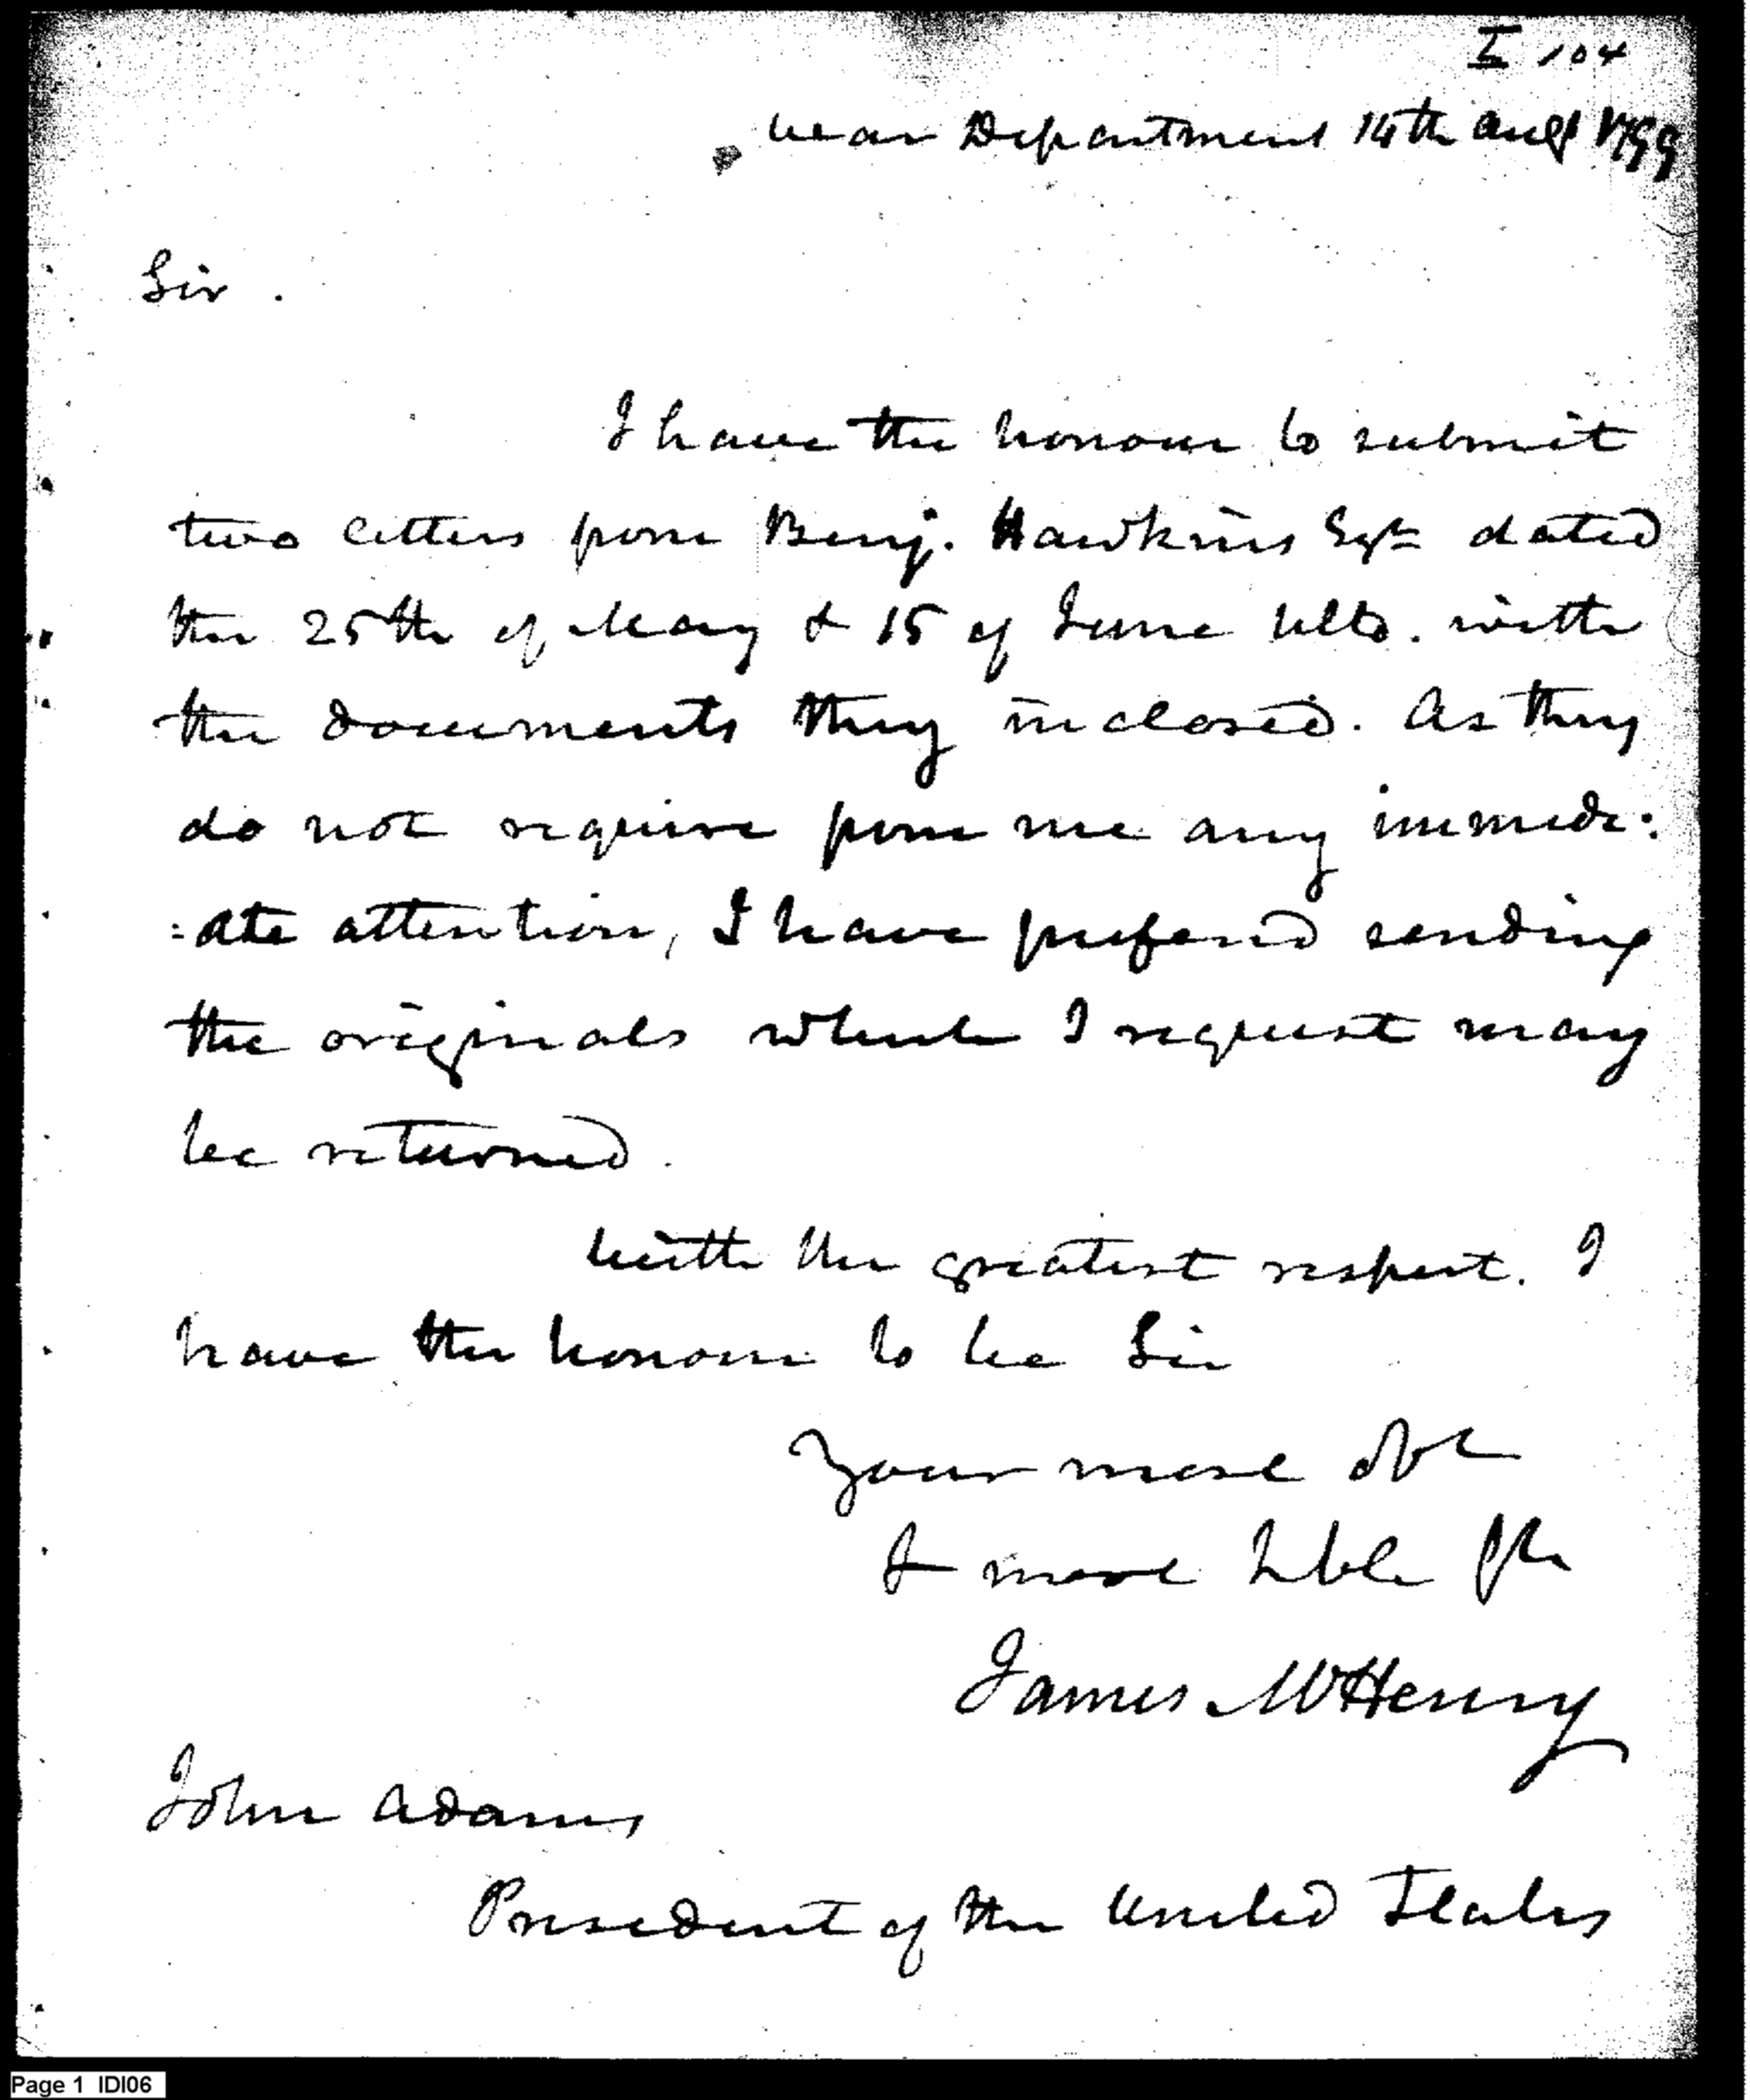 I 104
War Department 14th Augt 1799
Sir.
I have the honour to submit
two letters from Benj. Hawkins Esqr dated
the 25th of May & 15 of June ulto. with
the documents they inclosed. As they
do not require from me any immedi:
:ate attention, I have prefered sending
the originals which I request may
be returned.
With the greatest respect. I
have the honour to be Sir
Your most obt
& most hble
James McHenry
John Adams
President of the United States
Page 1 IDI06